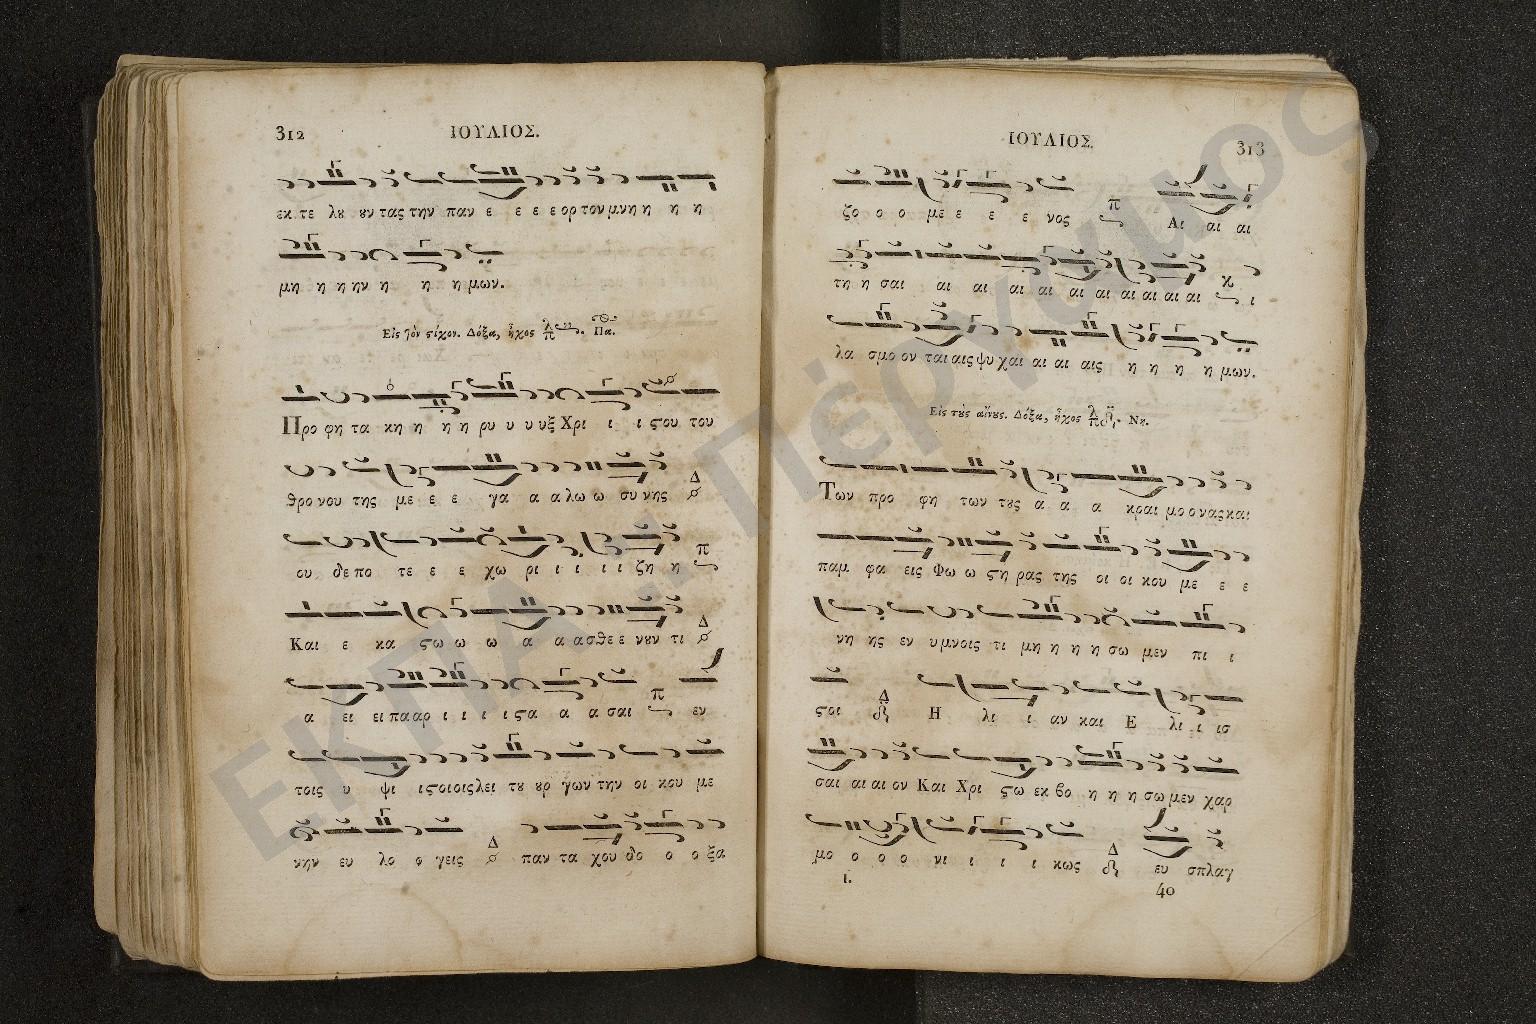 312
ΙΟΥΛΙΟΣ.
εκ τε λȣ ȣν τας την παν ε ε ε ε ορ τον μνη η η η
μη η η ην η η η μων.
Εἰς τὸν ϛίχον. Δόξα, ἦχος λ π Πα.
Προ φη τα κη η η η ρυ υ υ υξ Χρι ι ι ϛου του
θρο νου της με ε ε γα α α λω ω συ νης Δ
ου δε πο τε ε ε χω ρι ι ι ι ι ζη η π
Και ε κα ϛω ω ω α α ασθε ε νȣν τι Δ
α ει ει πα αρ ι ι ι ι ϛα α α σαι π εν
τοις υ ψι ιϛοιοις λει τȣ ȣρ γων την οι κου με
νην ευ λο ο γεις Δ παν τα χου δο ο ο ξα
ΙΟΥΛΙΟΣ.
313
ζο ο ο με ε ε ε νος π Αι αι αι
τη η σαι αι αι αι αι αι αι αι αι αι ι
λα σμο ον ται αις ψυ χαι αι αι αις η η η η μων.
Εἰς τȣς αἴνȣς. Δόξα, ἦχος λ π Νη.
Των προ φη των τȣς α α α κραι μο ο νας και
παμ φα εις Φω ω ϛη ρας της οι οι κου με ε ε
νη ης εν υ μνοις τι μη η η η σω μεν πι ι
ϛοι Δ Η λι ι αν και Ε λι ι ισ
σαι αι αι ον Και Χρι ϛω εκ βο η η η σω μεν χαρ
μο ο ο ο νι ι ι ι κως Δ ευ σπλαγ
ι.
40
ΕΚΠΑ... Πέργαμος